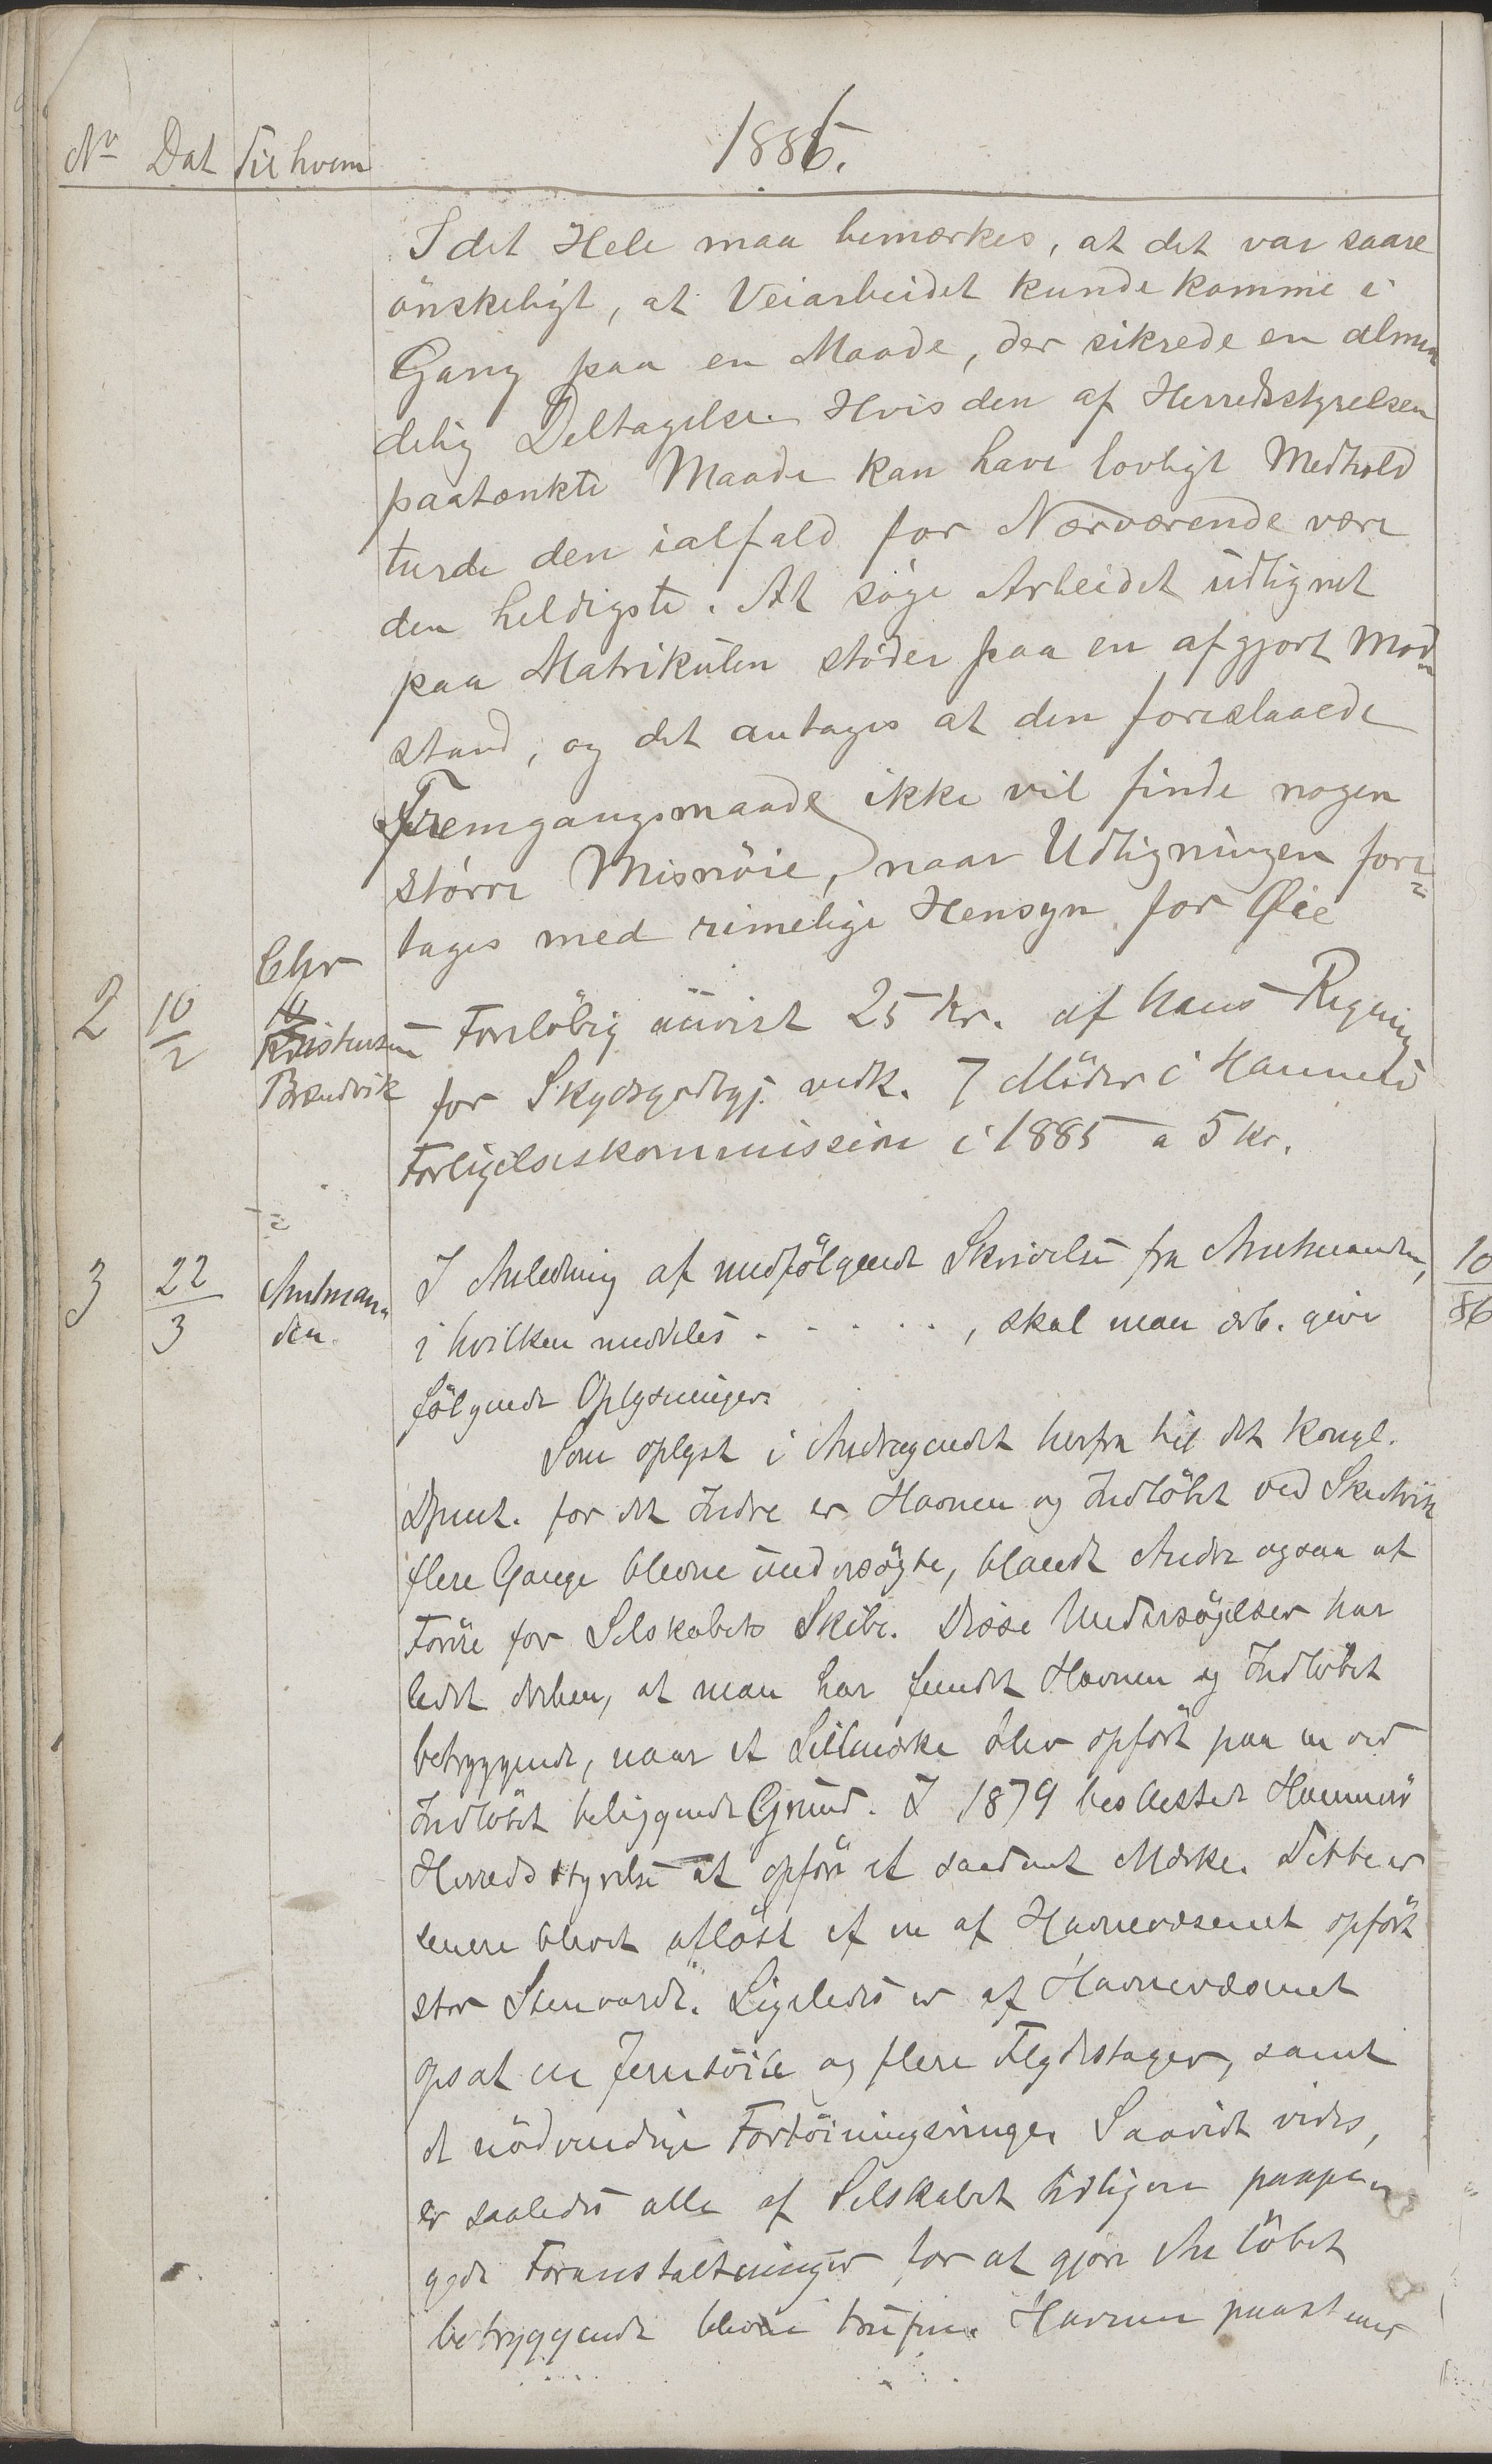 No Dat Til hvem 1886.
I det Hele maa bemærkes, at det var saare
ønskeligt, at Veiarbeidet kunde komme i
Gang paa en Maade, der sikrede en almin
delig Deltagelse. Hvis den af Herredsstyrelsen
paatænkte Maade kan have lovligt Medhold
turde den ialfald for Nærværende være
den heldigste. At søge Arbeidet udlignet
paa Matrikulen støder paa en afgjort Mod-
stand, og det antages at den foreslaaede
Fremgangsmaade ikke vil finde nogen
større Misnøie, naar Udligningen fore=
tages med rimelige Hensyn for Øie
2 10/2 Chr Kristensen Brændvik
Foreløbig anvist 25 Kr. af hans Regning
for Skydsgodtgj. vedk. 7 Møder i Hammerø
Forligelseskommission i 1885 a 5 Kr.
3 22/3 Amtman-
den.
I Anledning af medfølgende Skrivelse fra Amtmanden, 10/86
i hvilken meddeles . - - - - . , skal man ærb. give
følgende Oplysninger.
Som oplyst i Andragendet herfra til det kongl.
Dpmt. for det Indre er Havnen og Indløbet ved Skutvik
flere Gange blevne undersøgte, blandt Andre ogsaa af
Førere for Selskabets Skibe. Disse Undersøgelser har
ledet derhen, at man har fundet Havnen og Indløbet
betryggende, naar et Seilmærke blev opført paa en ved
Indløbet beliggende Grund. I 1879 besluttede Hammerø
Herredsstyrelse at opføre et saadant Mærke. Dette er
senere blevet afløst af en af Havnevæsenet opført
stor Stenvarde. Ligeledes er af Havnevæsenet
opsat en Jerntøile og flere Flydestager, samt
de nødvendige Fortøiningsringe. Saavidt vides,
er saaledes alle af Selskabet tidligere paapeg
ede Foranstaltninger for at gjøre Anløbet
betryggende blevne trufne. Havnen paastaaes